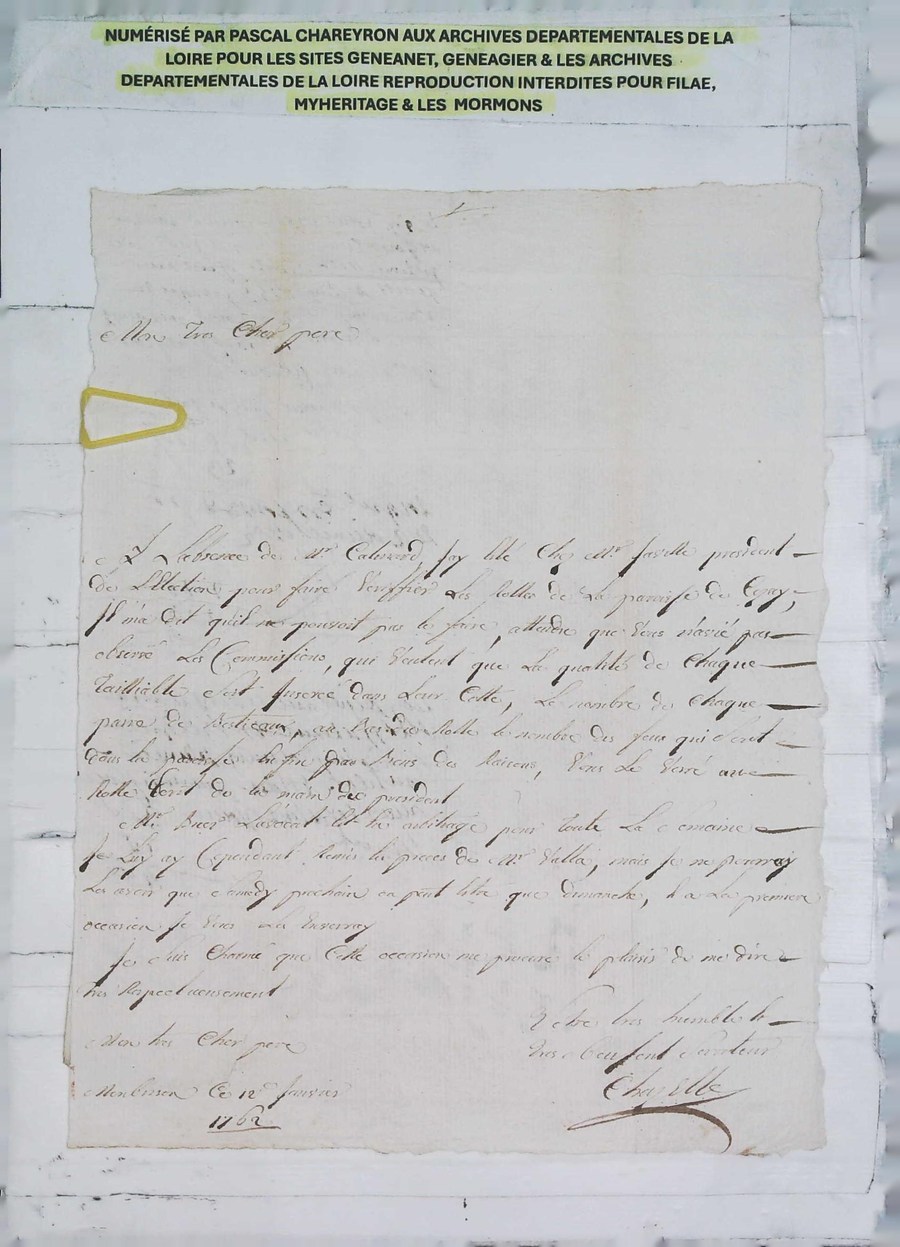 NUMÉRISÉ PAR PASCAL CHAREYRON AUX ARCHIVES DEPARTEMENTALES DE LA
LOIRE POUR LES SITES GENEANET, GENEAGIER & LES ARCHIVES
DEPARTEMENTALES DE LA LOIRE REPRODUCTION INTERDITES POUR FILAE,
MYHERITAGE & LES MORMONS
Mon Tres Cher pere
L'absence de Mr jay été Chez Mr president
De L'Election pour faire Veriffier Les Rolles de La paroisse de
Il m'a Dit qu'il ne pouvoit pas le faire, attendu que Vous n'avié pas
observé Les Commissions, qui Veulent que La qualité de Chaque
Tailliable Soit Inserée dans Leur Cotte, Le nombre de Chaque
paire de Bestieaux, au Bas du Rolle le nombre des feux qui Sont
dans la paroisse Enfin pas Biens des Raisons, Vous Le Verré au
Rolle Ecrit de la main du president
Mr L'avocat Est En arbitrage pour Toute La Semaine
Je Luy ay Cependant Remis le proces de Mr Valla, mais Je ne pourray
Les avoir que Samedy prochain ou peut Etre que Dimanche, a La premiere
occasion Je Vous La Enverray
Je Suis Charmé que Cette occasion me procure le plaisir de me dire
tres Respectueusement
Votre tres humble et
Mon tres Cher pere
tres obeissent Serviteur
Monbrison Ce 12e Janvier
1762